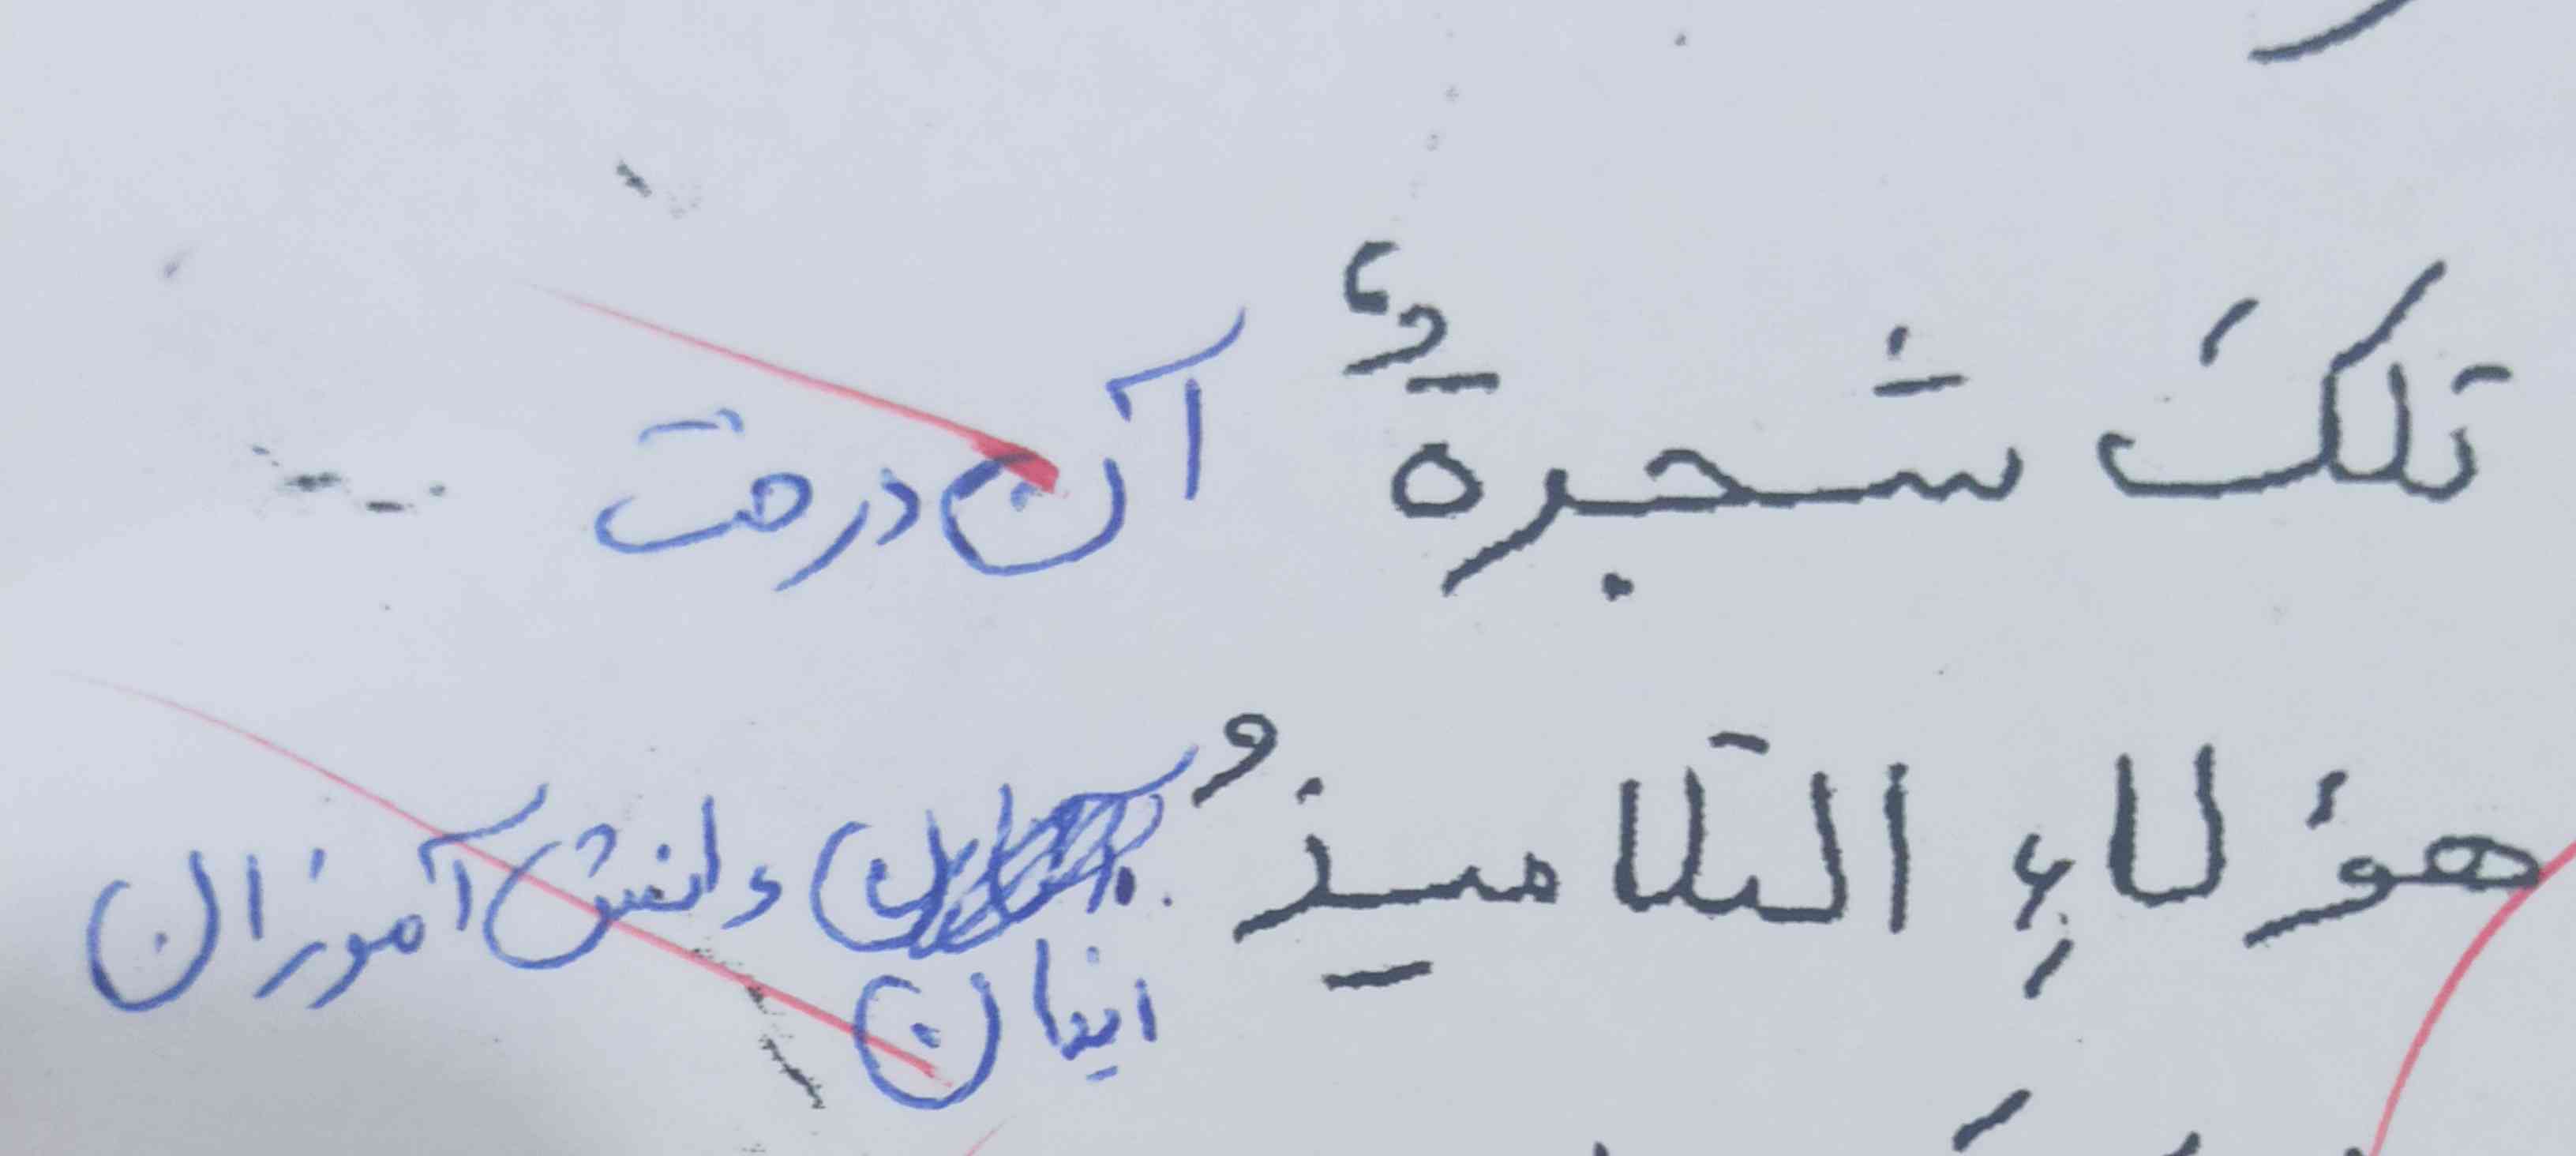 تلكَ شجرةٌ آن درخت
هؤلاءِ التلاميذُ دانش آموزان
اینان